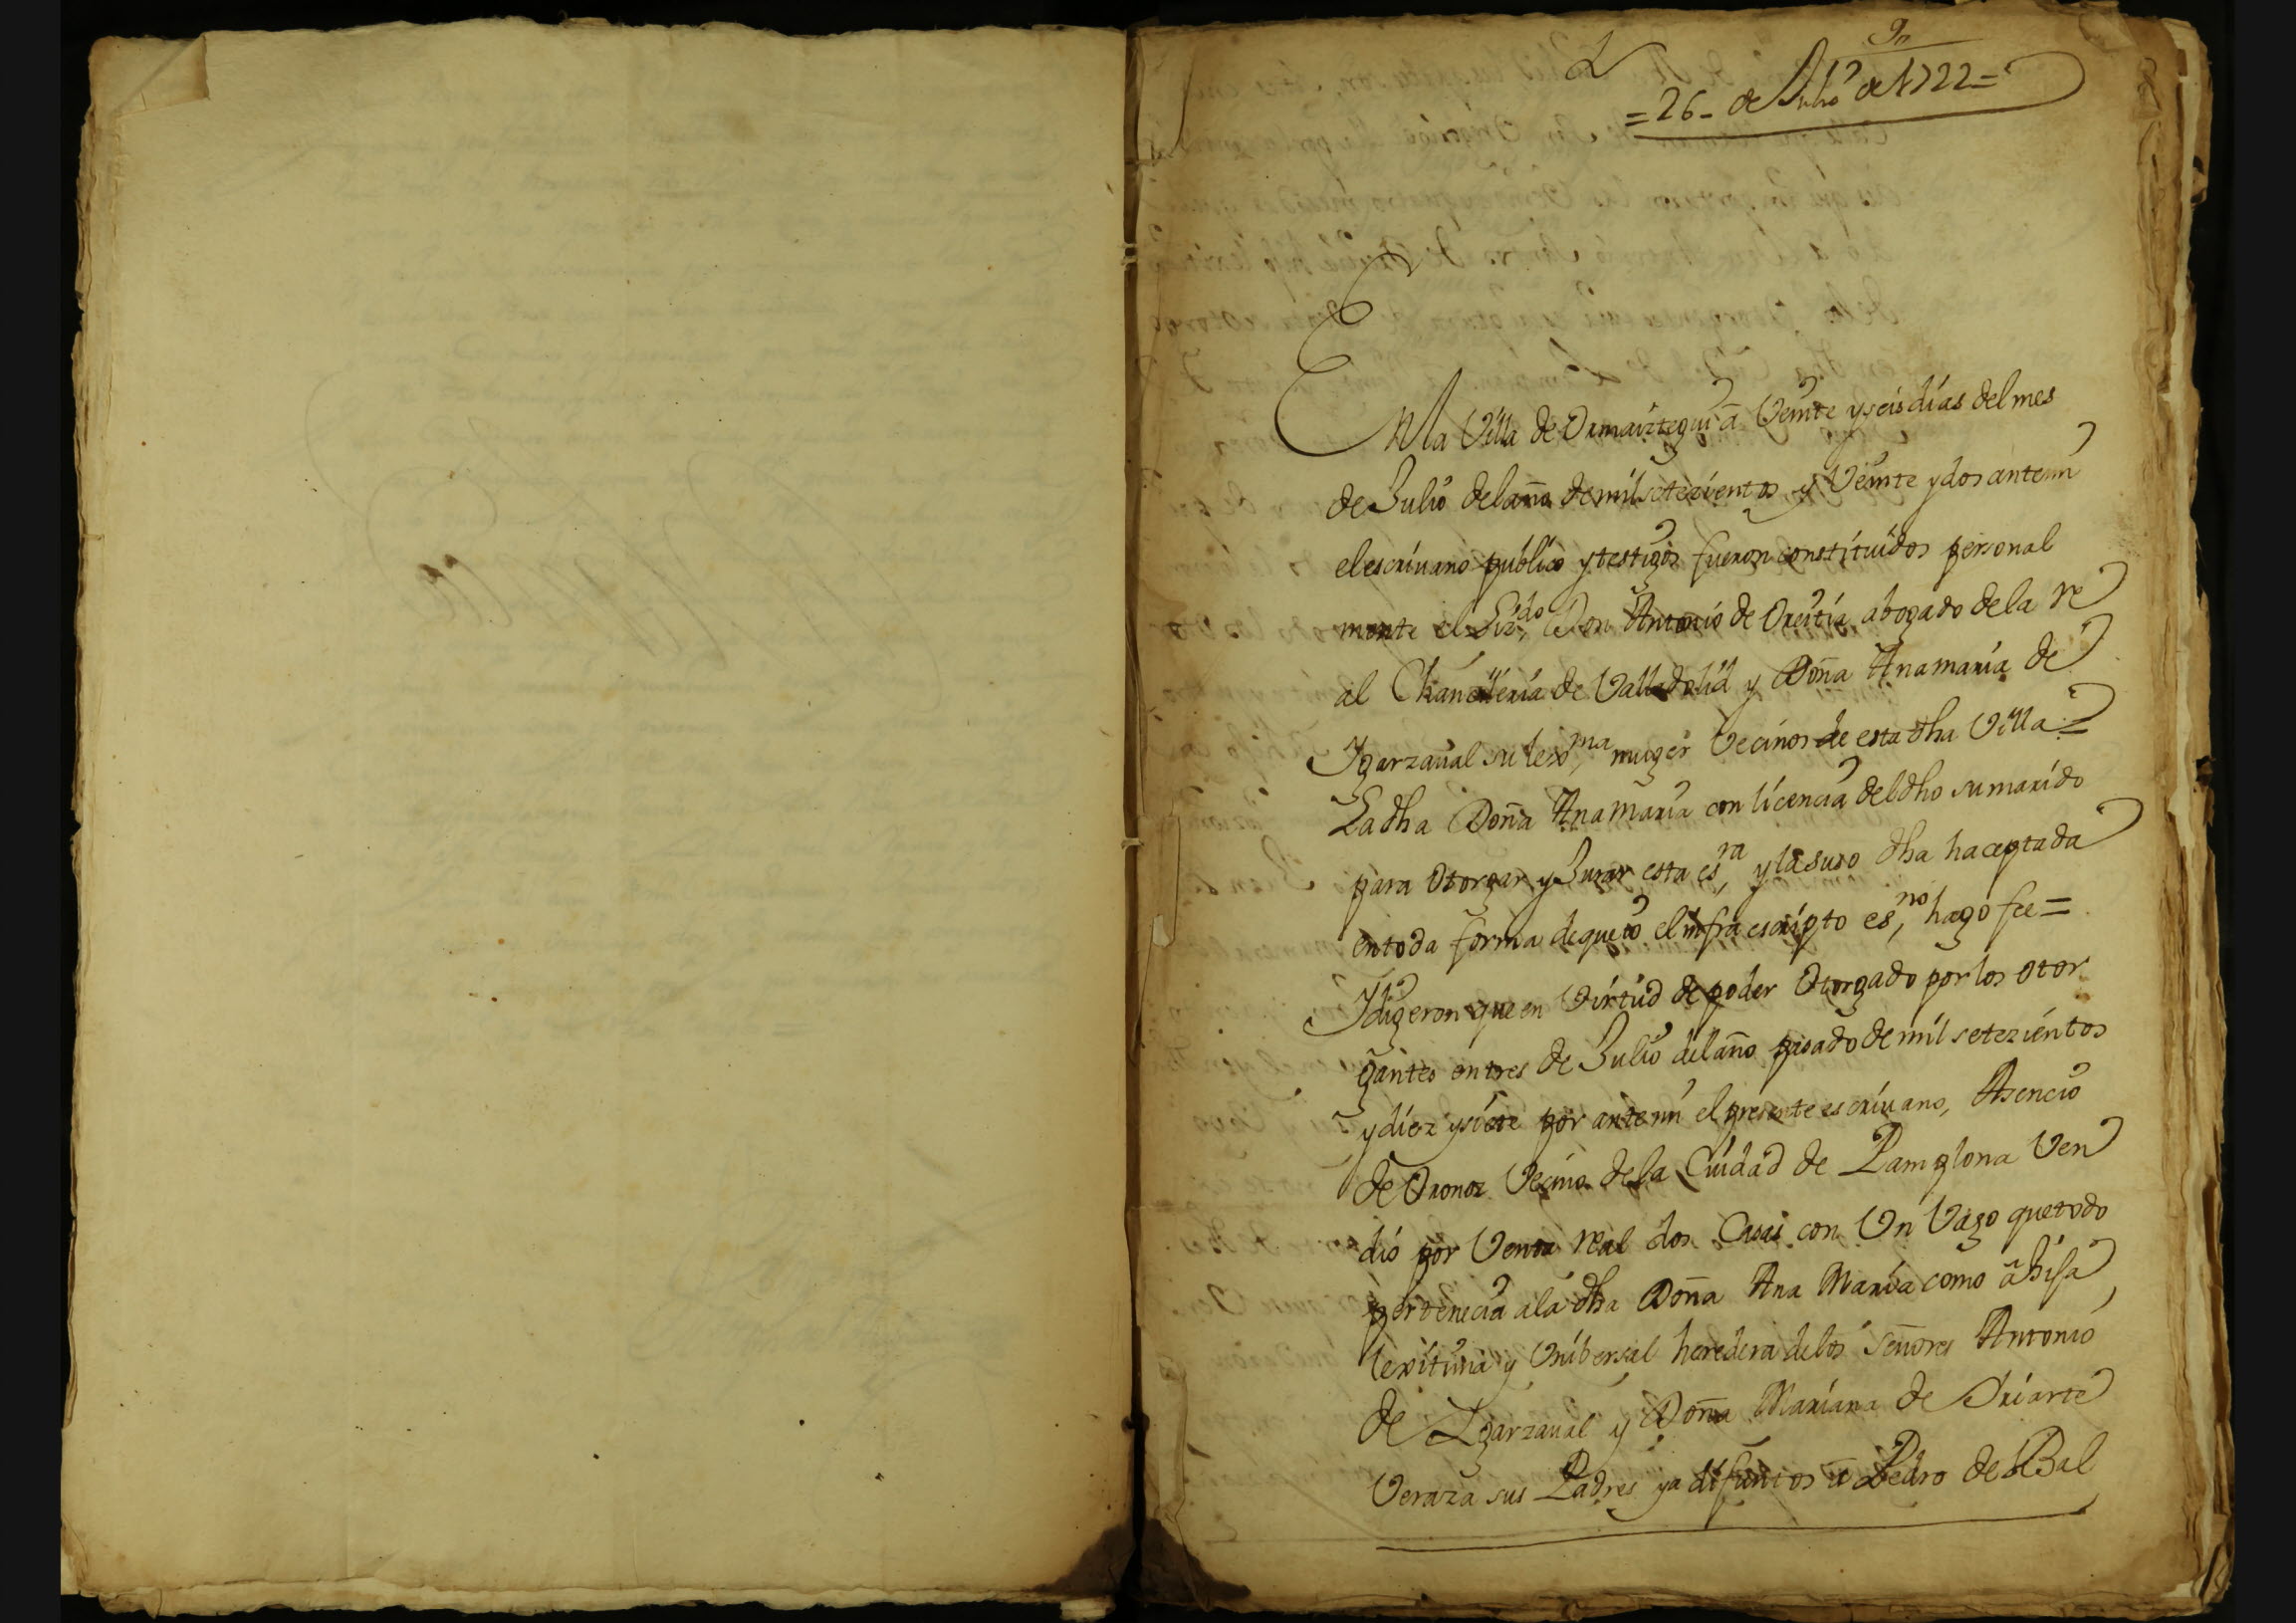 = 26 - de Julio de 1722 =
En la Villa de Ormaiztegui a Veinte y seis dias del mes
de Julio del año de mil setezientos y Veinte y dos antemi
el escriuano publico y testigos fueron constituidos personal
mente el Liz,do Don Antonio de Oreitia abogado de la Re
al Chanzilleria de Valladolid y Doña Ana maria de
Ygarzaual su lex,ma muger Vecinos de esta dha Villa =
La dha Doña Ana Maria con licencia del dho su marido
para Otorgar y Jurar esta es,ra y la suso dha haceptada
en toda forma de que io el infra escripto es,no hago fee =
Y digeron que en Virtud de poder Otorgado por los otor
gantes en tres de Julio del año pasado de mil setezientos
y diez y siete por antemi el presente escriuano, Asencio
de Oronoz Vecino de la Ciudad de Pamplona Ven
dio por Venta real dos Casas con Vn Vago que todo
pertenecia a la dha Doña Ana Maria como a hija
lexitima y Vnibersal heredera de los Señores Antonio
de Ygarzaual y Doña Mariana de Oriarte
Veraza sus Padres ya difuntos a Pedro de Bal